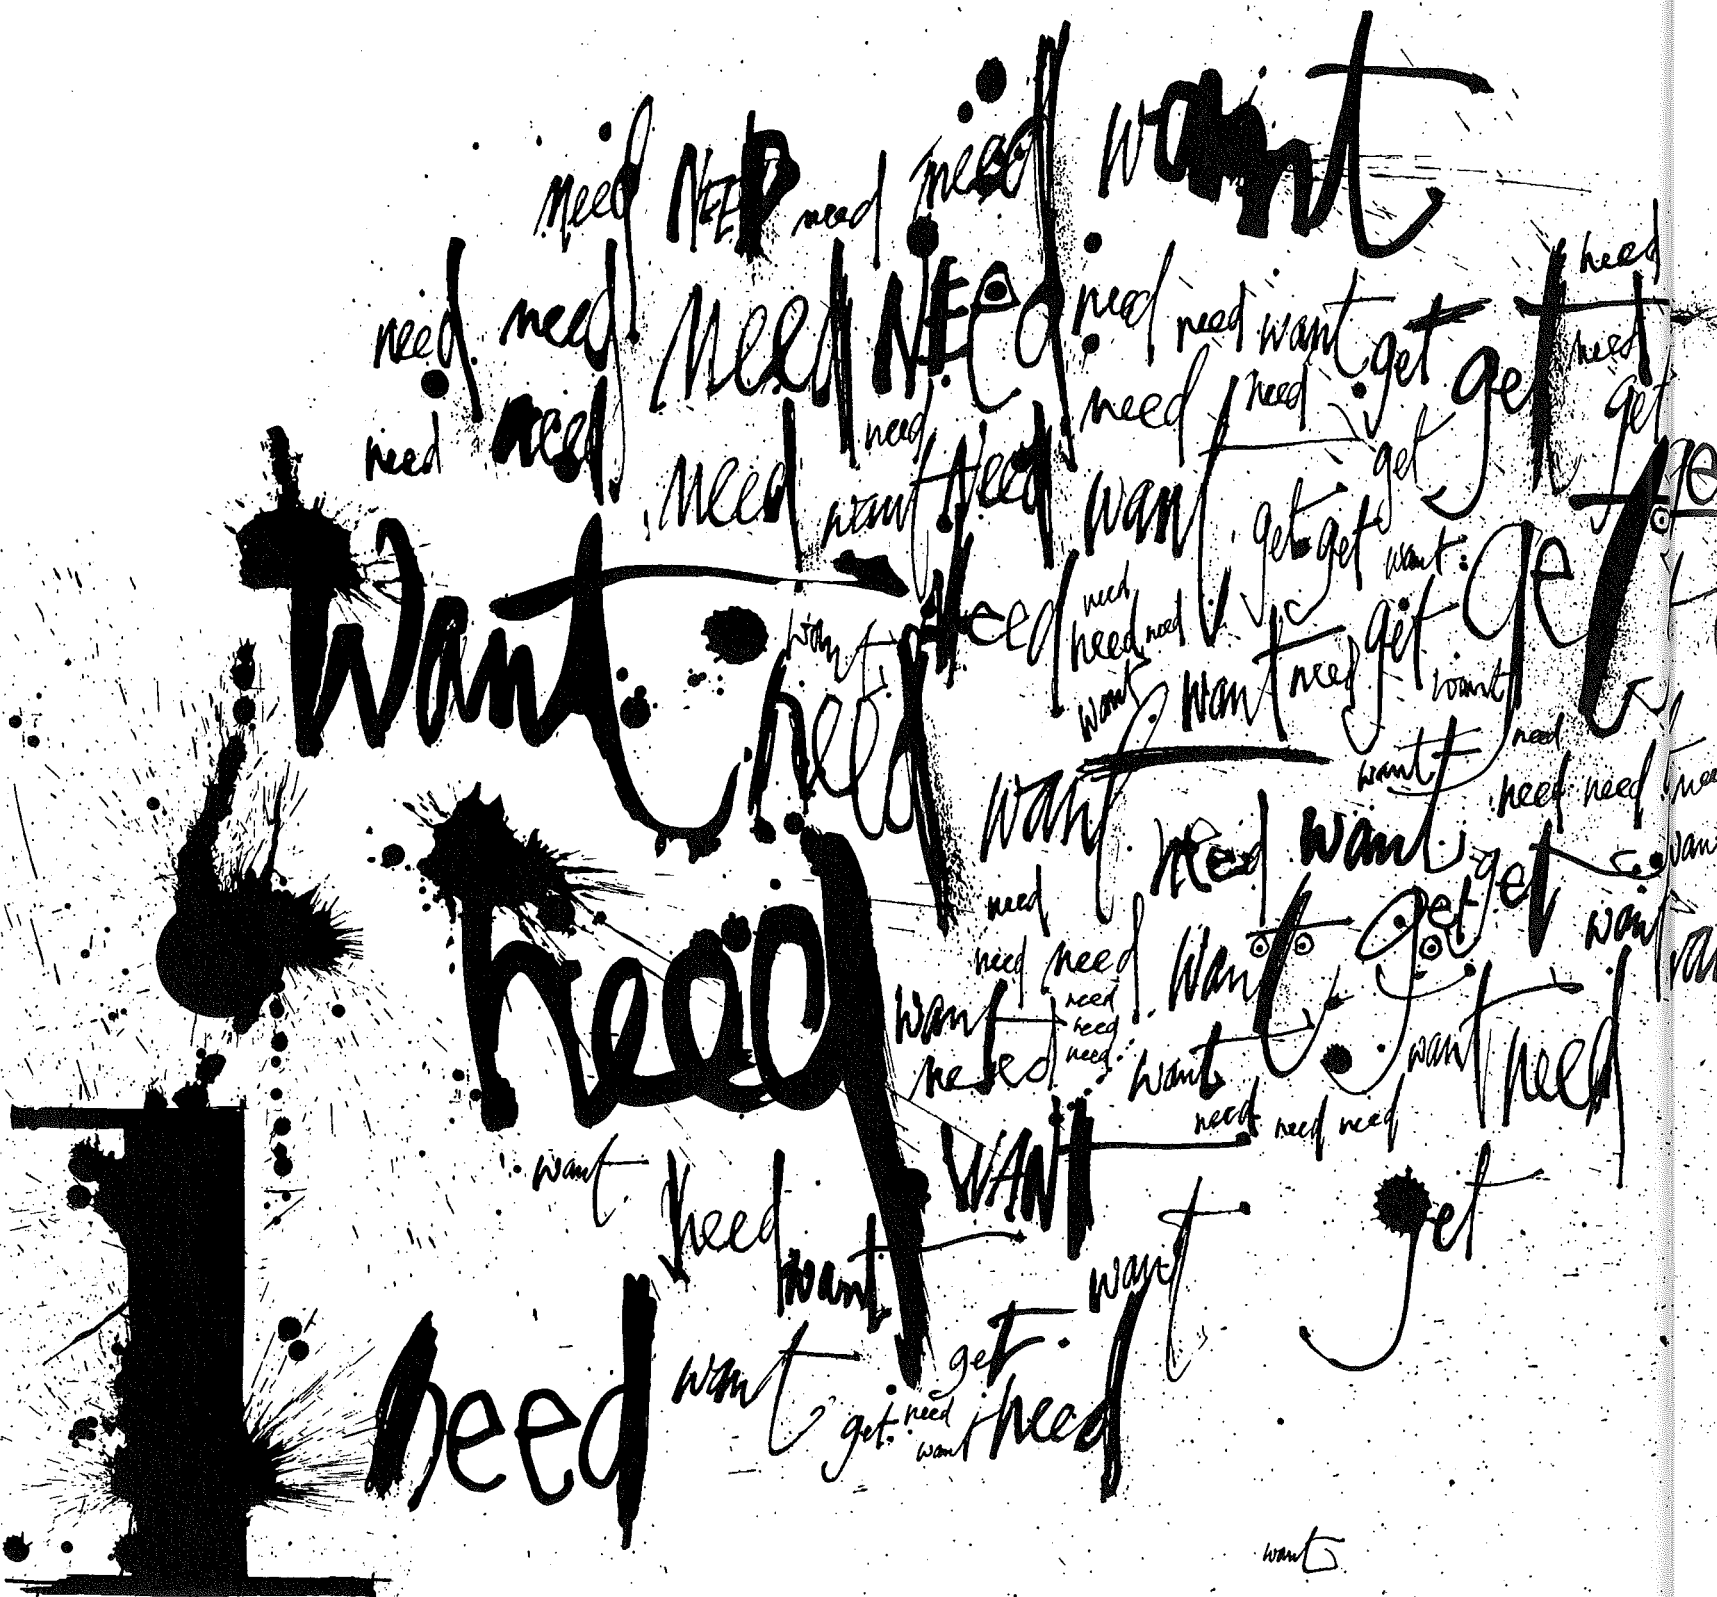 need NEED need need want
need
need need need NEed need need want get get need
need need need need need need get get
need want Need want get get want get ge
Want want need need need need get
need want want need want
want want need
need need need
I need need want get want
need need
need want get want
need need want need want need
need need want
need need need need
want WANT
need want want get
need want get need
get need want
want